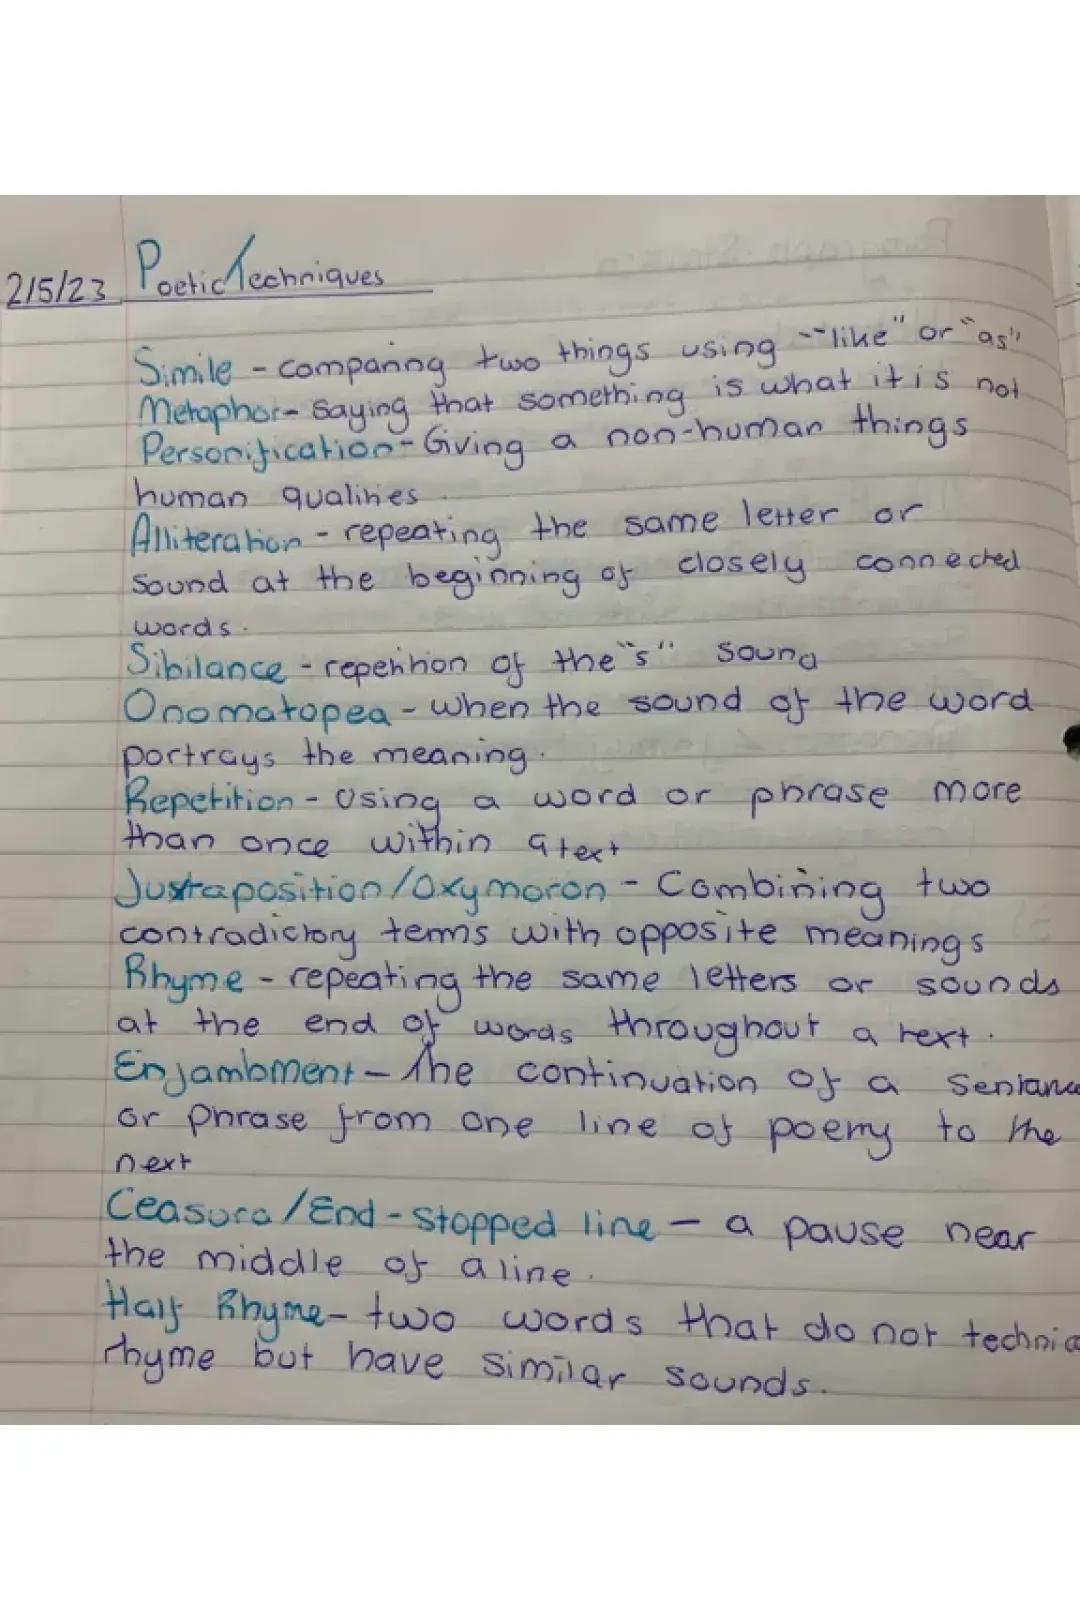 2/5/23 Poetic Techniques
Simile - comparing two things using "like" or "as"
Metaphor - Saying that something is what it is not
Personification - Giving a non-human things
human qualities.
Alliteration - repeating the same letter or
sound at the beginning of closely connected
words.
Sibilance - repetition of the "s" sound
Onomatopea - when the sound of the word
portrays the meaning.
Repetition - Using a word or phrase more
than once within a text
Juxtaposition/Oxymoron - Combining two
contradictory terms with opposite meanings
Rhyme - repeating the same letters or sounds
at the end of words throughout a text.
Enjambment - The continuation of a Sentance
or phrase from one line of poetry to the
next
Ceasura/End-stopped line - a pause near
the middle of a line.
Half Rhyme - two words that do not technica
rhyme but have similar sounds.